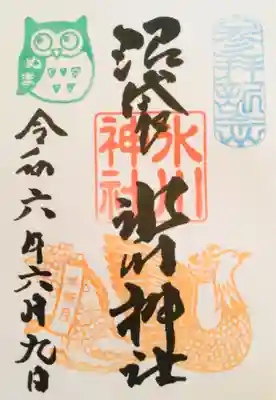 沼袋
氷川神社
氷川
神社
令和六年六月九日
ぬま